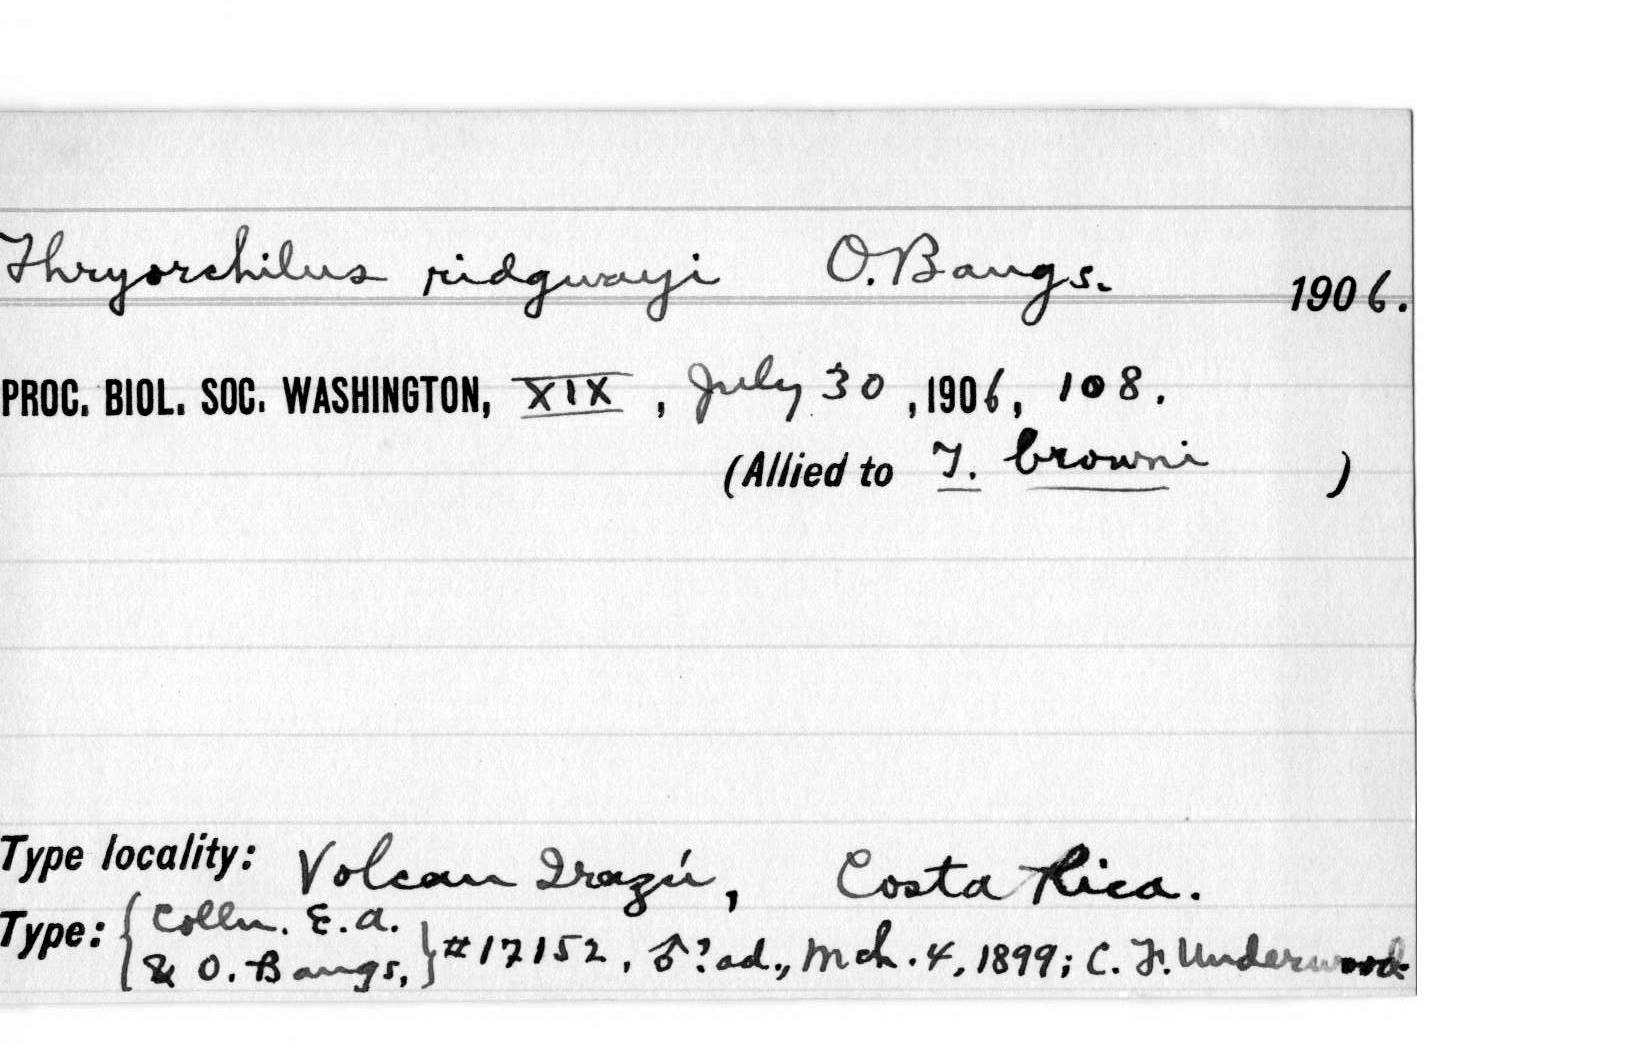 Thryorchilus ridgwayi O. Bangs. 1906.
PROC. BIOL. SOC. WASHINGTON, XIX, July 30, 1906, 108.
(Allied to T. browni )
Type locality: Volcan Irazú, Costa Rica.
Type: { Colln. E. A. & O. Bangs, } #17152, ♂? ad., Mch. 4, 1899; C. F. Underwood